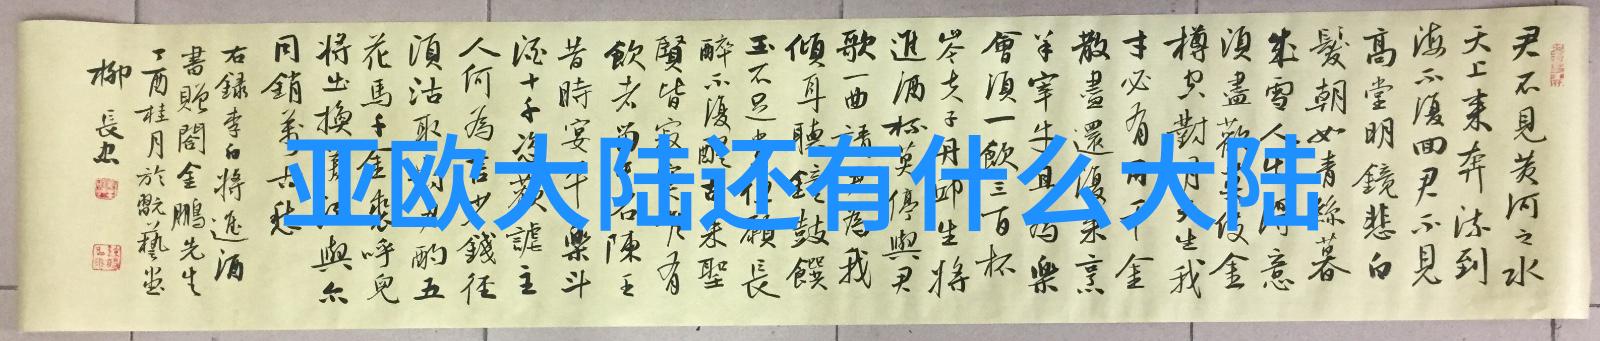 君不见黄河之水
天上来奔流到
海不復回君不見
高堂明鏡悲白
髮朝如青絲暮
成雪人生得意
須盡歡莫使金
樽空對月天生我
才必有用千金
散盡還復來烹
羊宰牛且為樂
會須一飲三百杯
岑夫子丹邱生將
進酒杯莫停與君
歌一曲請君為我
傾耳聽鐘鼓饌
玉不足貴但願長
醉不復醒古来聖
賢皆寂寞惟有
飲者留其名陳王
昔時宴平樂斗
酒十千恣歡謔主
人何為言少錢径
須沽取對君酌五
花馬千金裘呼兒
將出換美酒與尔
同銷萬古愁
右録李白將進酒
書贈閤金鵬先生
丁酉桂月於翫藝堂
柳長忠
亚欧大陆还有什么大陆